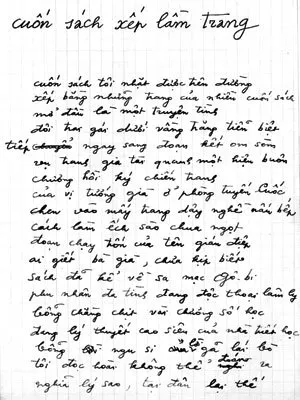 cuốn sách xếp lầm trang
cuốn sách tôi nhặt được trên đường
xếp bằng những trang của nhiều cuốn sách
mở đầu là một truyện tình
đôi trai gái dưới vầng trăng tiễn biệt
tiếp ngay sang đoạn kết om sòm
vụ tranh gia tài quanh một hiệu buôn
chương hồi ký chiến tranh
của vị tướng già ở phòng tuyến Quốc
chen vào mấy trang dạy nghề nấu bếp
cách làm ếch xào chua ngọt
đoạn chạy trốn của tên gián điệp
ai giết bà già, chưa kịp biết
sách đã kể về sa mạc Gô-bi
phu nhân đa tình đang độc thoại lâm ly
bỗng chằng chịt vài chương số học
đang lý thuyết cao siêu của nhà triết học
bỗng ngu si gã lái bò
tôi đọc hoài không thể ra
nghĩa lý sao, tại đâu lại thế